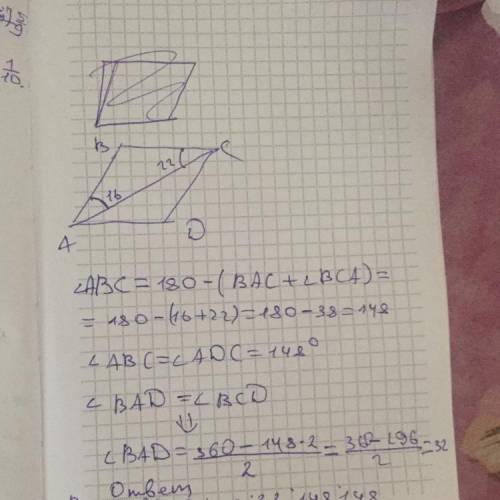 1/10.
B
C
22
16
A
D
∠ABC = 180 - (BAC + ∠BCA) =
= 180 - (16 + 22) = 180 - 38 = 148
∠ABC = ∠ADC = 148°
∠BAD = ∠BCD
⇓
∠BAD = (360 - 148·2)/2 = (360 - 296)/2 = 32
Ответ